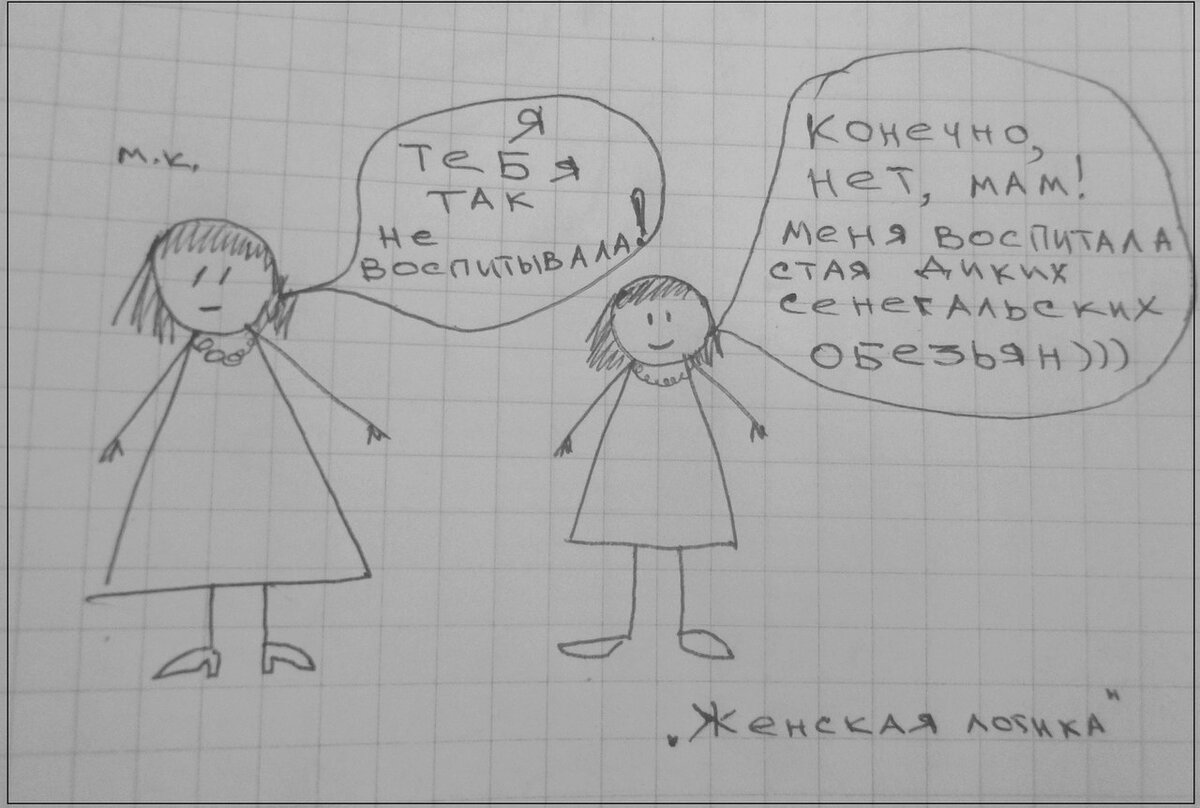 м.к.
Я
ТЕБЯ
ТАК
НЕ
ВОСПИТЫВАЛА!
КОНЕЧНО,
НЕТ, МАМ!
МЕНЯ ВОСПИТАЛА
СТАЯ ДИКИХ
СЕНЕГАЛЬСКИХ
ОБЕЗЬЯН)))
„Женская логика"